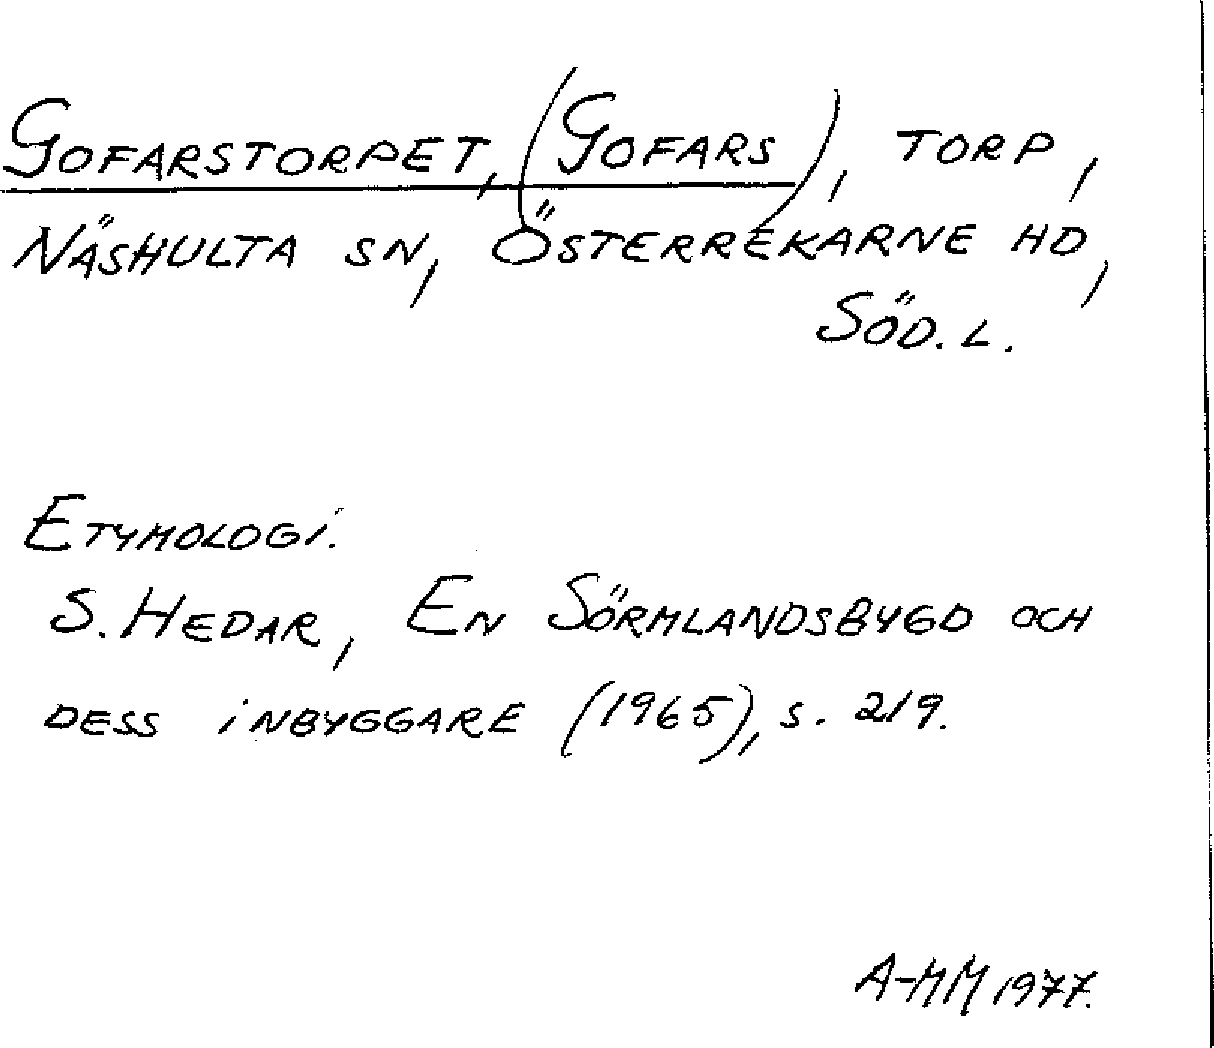 GOFARSTORPET, (GOFARS), TORP,
NÄSHULTA SN, ÖSTERREKARNE HD,
SÖD. L.
ETYMOLOGI.
S. HEDAR, EN SÖRMLANDSBYGD OCH
DESS INBYGGARE (1965), S. 219.
A-MM 1977.